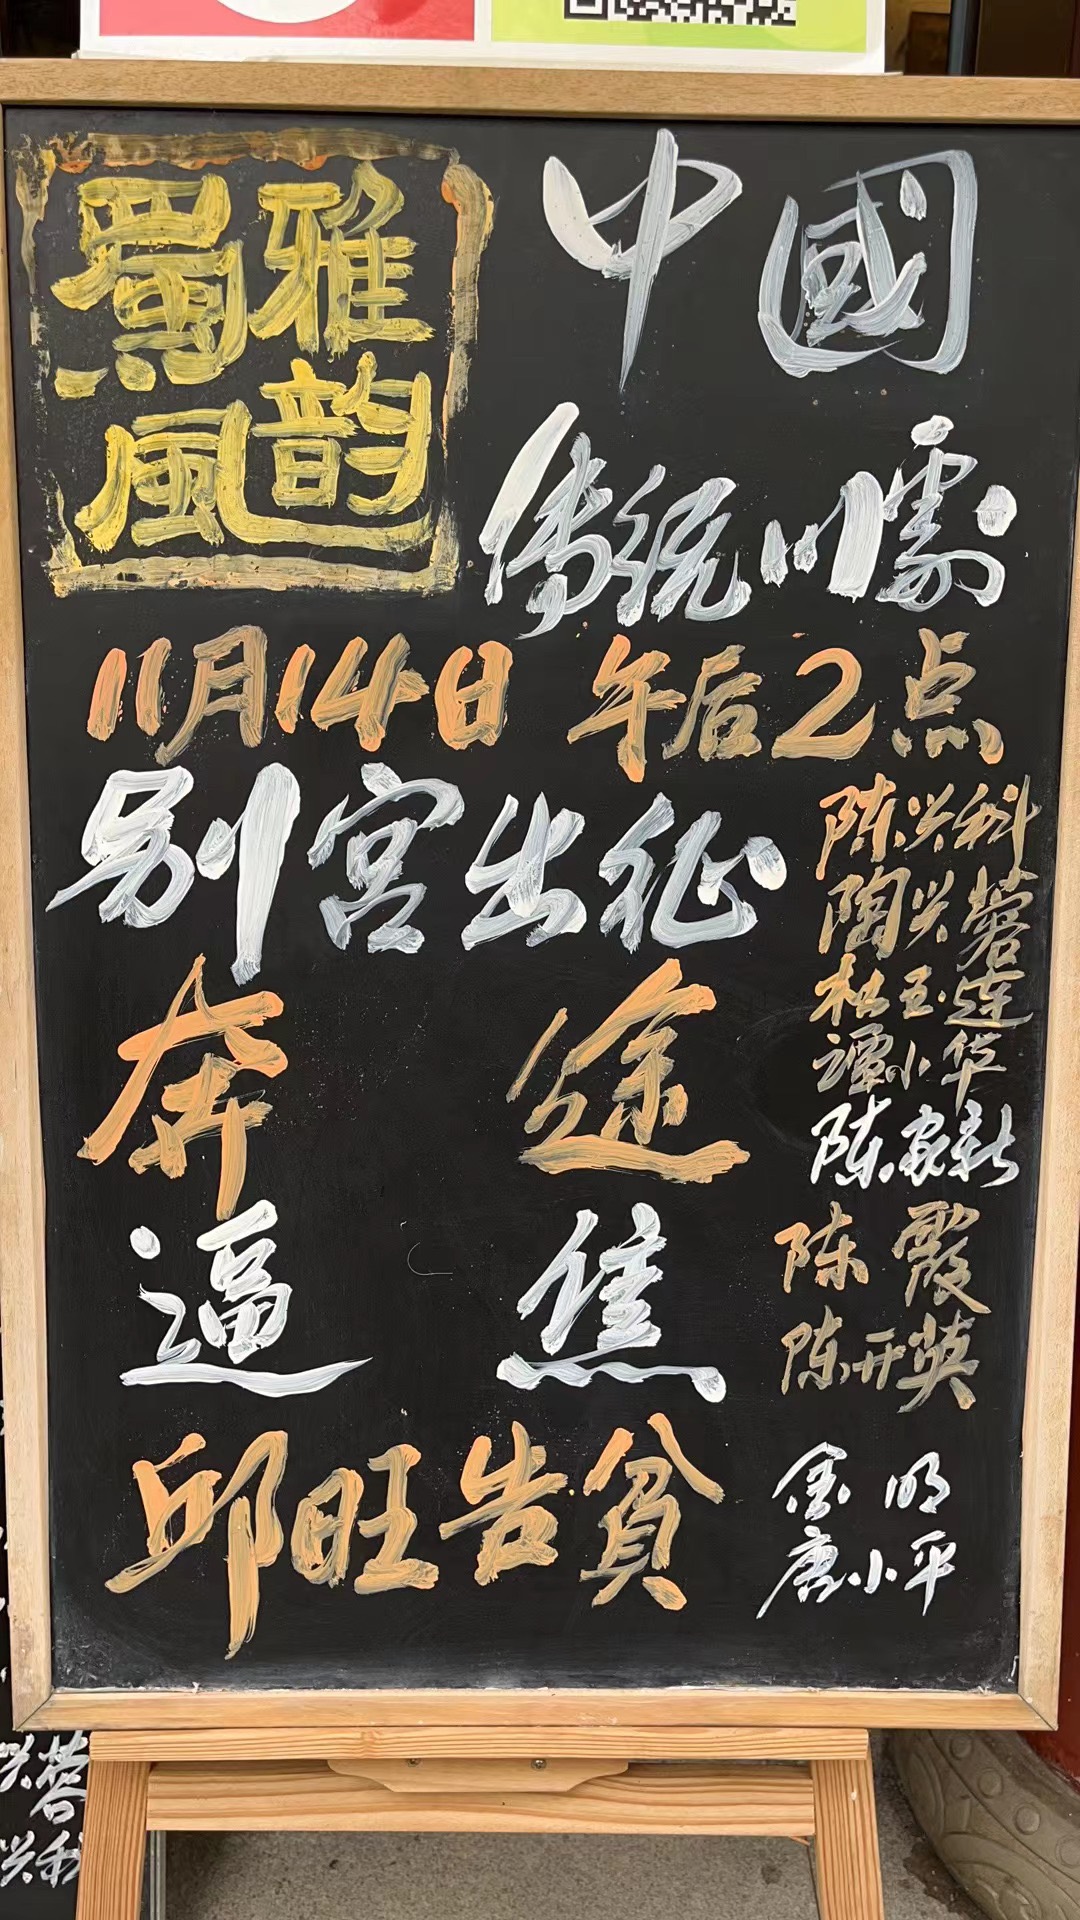 蜀雅
風韵
中國
传统川剧
11月14日 午后2点
别宫出征
陈兴科
陶兴蓉
杜玉莲
谭小华
陈家新
奔途
逼焦
陈霞
陈开英
邱旺告贫
金明
唐小平
兴蓉
兴科